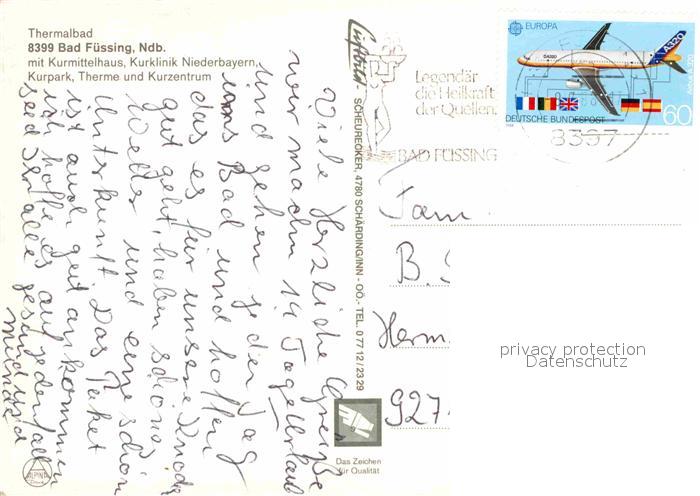 Thermalbad
8399 Bad Füssing, Ndb.
mit Kurmittelhaus, Kurklinik Niederbayern,
Kurpark, Therme und Kurzentrum
Viele Herzliche Grüße
wir machen 14 Tage Urlaub
und gehen jeden Tag
ins Bad und hoffen
das es für unsere Knochen
gut geht, haben schönes
Wetter und eine schöne
Unterkunft. Das Paket
ist auch gut ankommen
ich hoffe das auf jedenfall
seid Ihr alle gesund und
munter
Luftbild - SCHEURECKER, 4780 SCHÄRDING/INN - OÖ. - TEL. 0 77 12 / 23 29
Legendär
die Heilkraft
der Quellen.
BAD FÜSSING
8397
EUROPA
A320
DEUTSCHE BUNDESPOST
60
Fam.
B. S
Herm.
927
privacy protection
Datenschutz
Das Zeichen
für Qualität
ALPINA